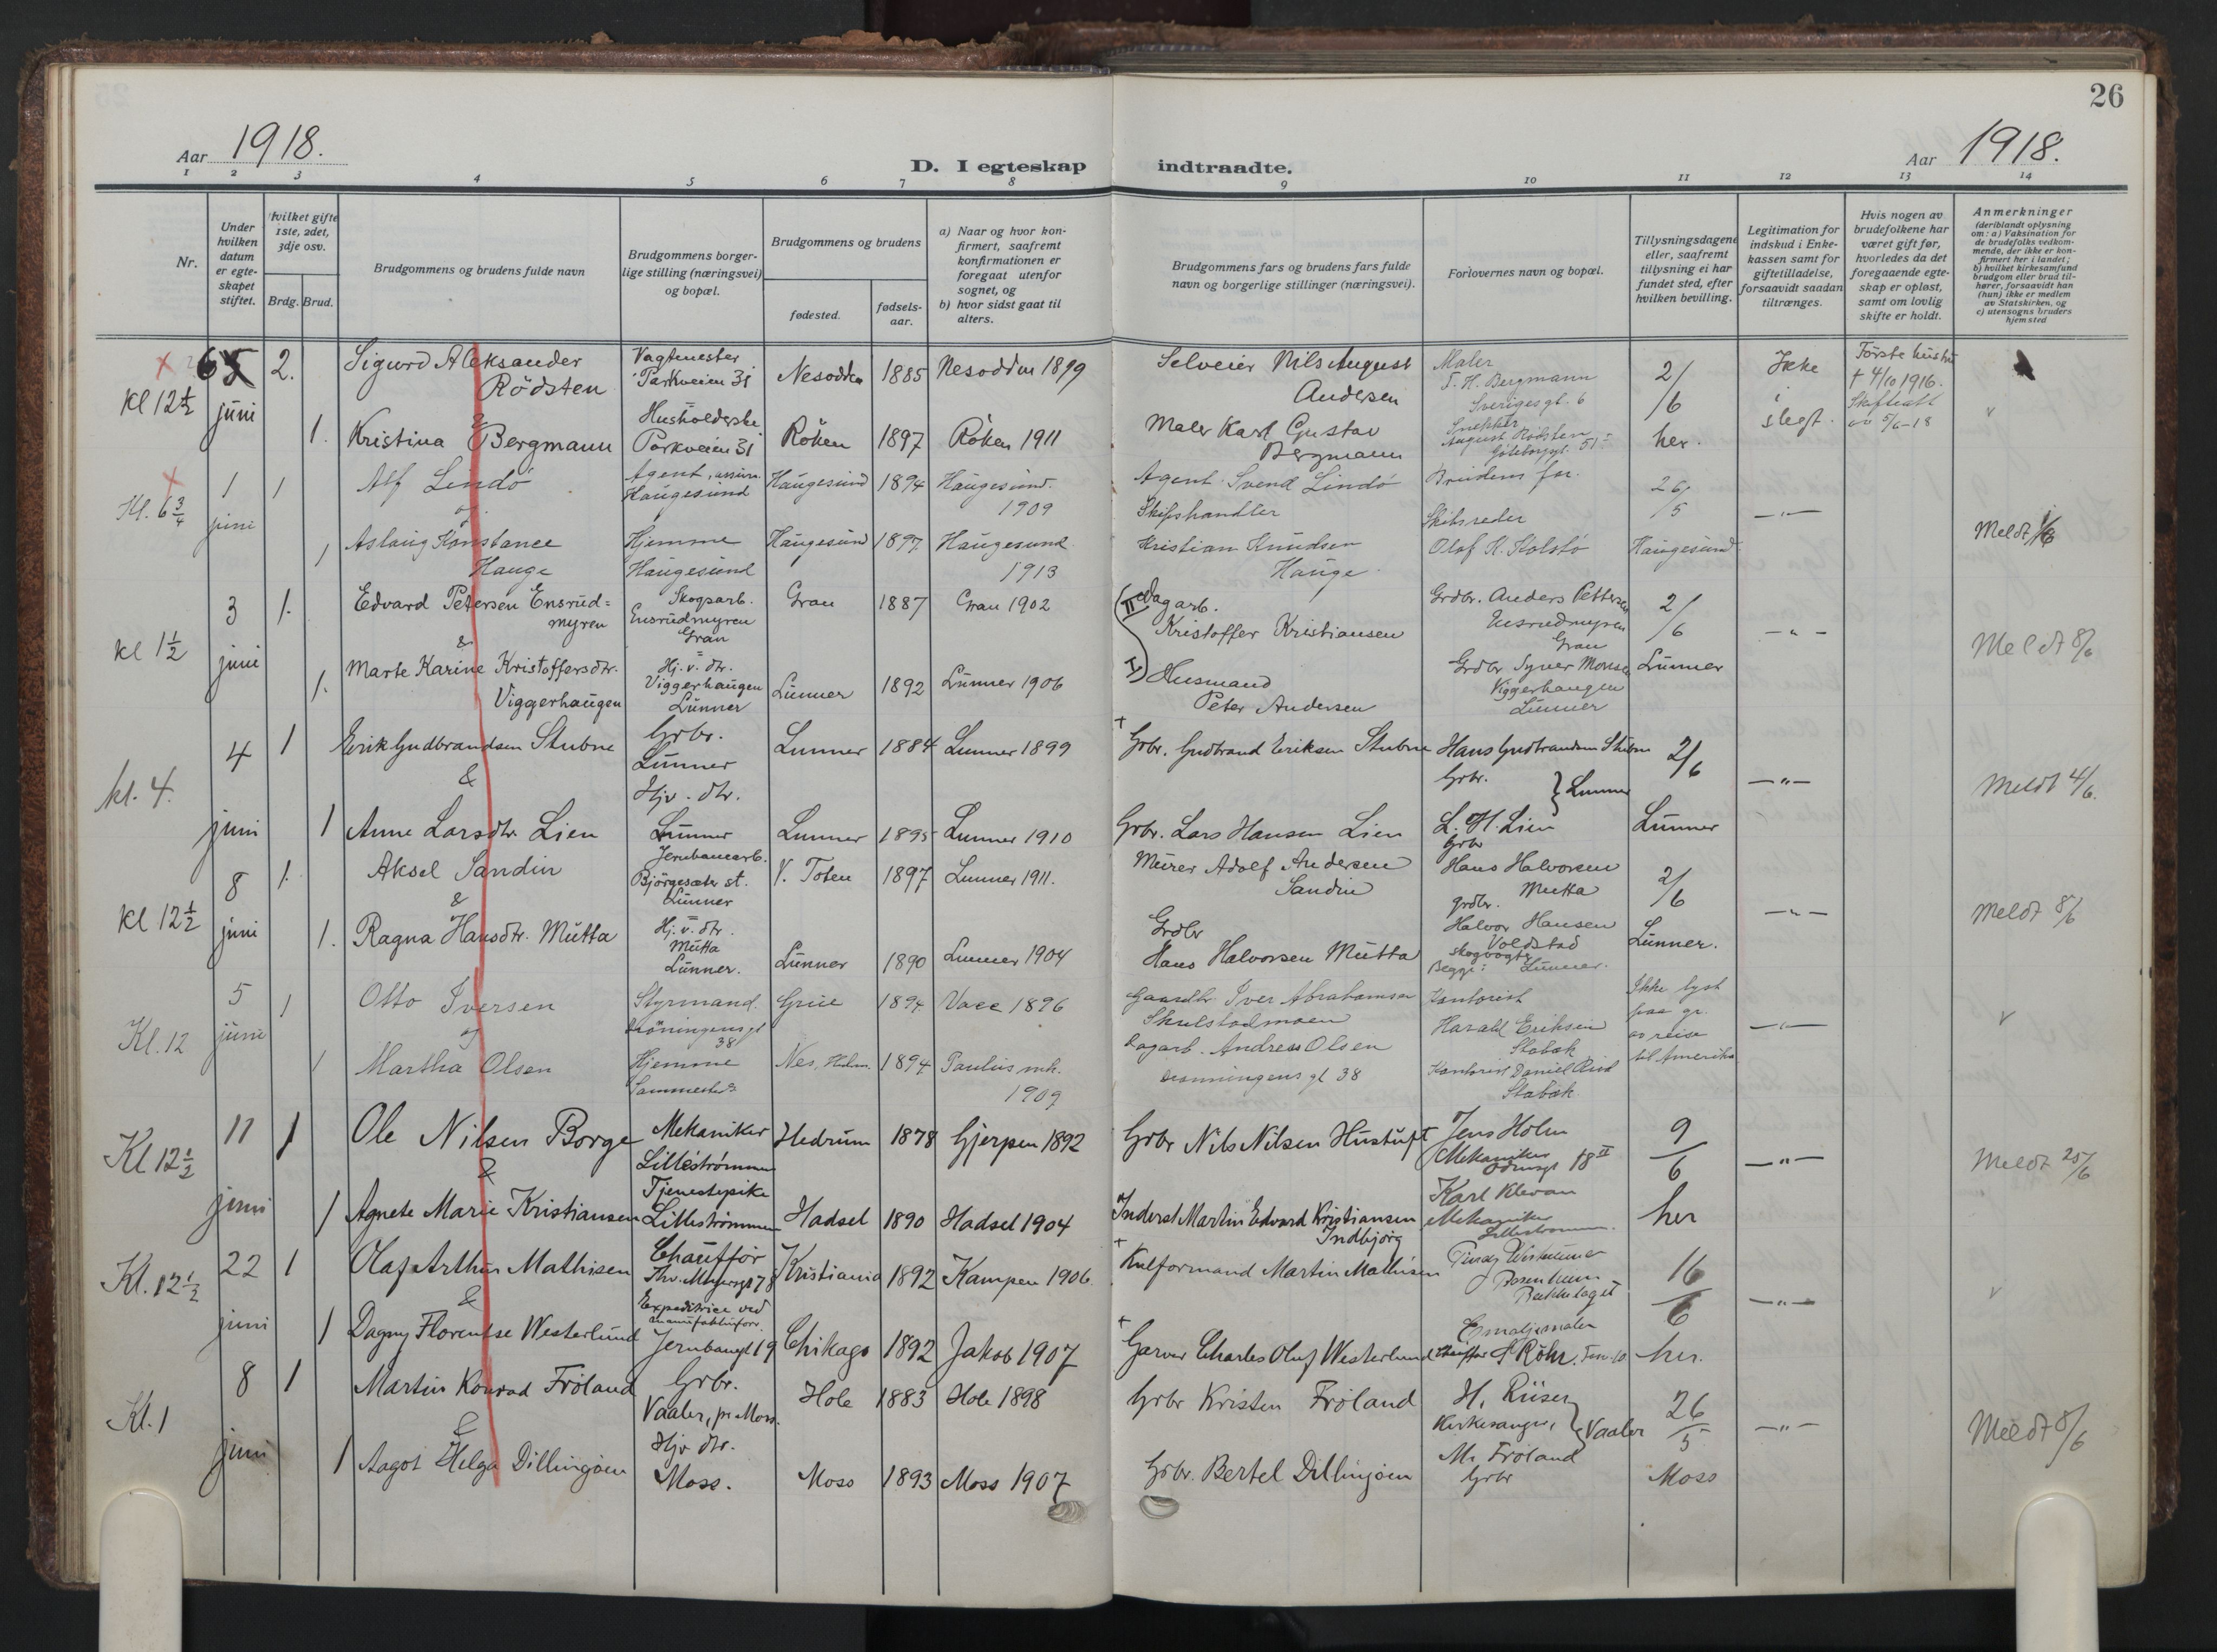 26
Aar 1918.
D. I egteskap indtraadte.
Aar 1918.
1 2 3 4 5 6 7 8 9 10 11 12 13 14
Nr.
Under hvilken datum er egteskapet stiftet.
Hvilket gifte 1ste, 2det, 3dje osv.
Brdg. Brud.
Brudgommens og brudens fulde navn
Brudgommens borgerlige stilling (næringsvei) og bopæl.
Brudgommens og brudens
fødested.
fødselsaar.
a) Naar og hvor konfirmert, saafremt konfirmationen er foregaat utenfor sognet, og
b) hvor sidst gaat til alters.
Brudgommens fars og brudens fars fulde navn og borgerlige stillinger (næringsvei).
Forlovernes navn og bopæl.
Tillysningsdagene eller, saafremt tillysning ei har fundet sted, efter hvilken bevilling.
Legitimation for indskud i Enkekassen samt for giftetilladelse, forsaavidt saadan tiltrænges.
Hvis nogen av brudefolkene har været gift før, hvorledes da det foregaaende egteskap er opløst, samt om lovlig skifte er holdt.
Anmerkninger (deriblandt oplysning om: a) Vaksination for de brudefolks vedkommende, der ikke er konfirmert her i landet; b) hvilket kirkesamfund brudgom eller brud tilhører, forsaavidt han (hun) ikke er medlem av Statskirken, og c) utensogns bruders hjemsted
Kl 12½ 6 juni 2. Sigurd Aleksander Rödsten Vagtmester Parkveien 31 Nesodden 1885 Nesodden 1899 Selveier Nils August Andersen Maler T. H. Bergmann Sverigesgt. 6 2/6 Ikke i slegt. Første hustru † 4/10 1916. Skifteatt. av 5/6-18
& 1. Kristina Bergmann Husholderske Parkveien 31 Röken 1897 Röken 1911 Maler Karl Gustav Bergmann Snekker August Rödsten Göteborggt. 51 her.
Kl. 6¾ 1 juni 1 Alf Lindö Agent, Haugesund Haugesund 1894 Haugesund 1909 Agent Svend Lindö Brudens far. 26/5 —"—
og 1 Aslaug Konstance Hauge Hjemme Haugesund Haugesund 1897 Haugesund 1913 Skibshandler Kristian Knudsen Hauge Skibsreder Olaf K. Kolstö Haugesund Meldt 1/6
kl 1½ 3 juni 1. Edvard Petersen Ensrudmyren Skogsarb. Ensrudmyren Gran Gran 1887 Gran 1902 II Dagarb. Kristoffer Kristiansen Grdbr. Anders Pettersen Ensrudmyren Gran 2/6 —"— Meldt 8/6
& 1. Marte Karine Kristoffersdtr. Viggerhaugen Hj. v. dtr. Viggerhaugen Lunner Lunner 1892 Lunner 1906 I Husmand Peter Andersen Grdbr Syver Monsen Viggerhaugen Lunner Lunner
kl. 4. 4 juni 1 Erik Gudbrandsen Stubne Grbr. Lunner Lunner 1884 Lunner 1899 Grbr. Gudbrand Eriksen Stubne Hans Gudbrandsen Stubne Grbr. } Lunner 2/6 —"— Meldt 4/6.
& 1 Anne Larsdtr Lien Hjv. dtr. Lunner Lunner 1895 Lunner 1910 Grbr. Lars Hansen Lien L. H. Lien Grbr Lunner
kl 12½ 8 juni 1. Aksel Sandin Jernbanearb. Björgesæter st. Lunner V. Toten 1897 Lunner 1911. Murer Adolf Andersen Sandin Hans Halvorsen Mutta grdbr. 2/6 —"— Meldt 8/6
& 1. Ragna Hansdtr. Mutta Hj. v. dtr. Mutta Lunner. Lunner 1890 Lunner 1904 Grdbr Hans Halvorsen Mutta Halvor Hansen Voldstad skogvogter Begge: Lunner. Lunner.
Kl. 12 5 juni 1 Otto Iversen Styrmand. Dronningensgt 38 Grue 1894 1896 Gaardbr. Iver Abrahamsen Skulstadmoen Kontorist Harald Eriksen Stabæk Ikke lyst paa gr. av reise til Amerika —"—
og 1 Martha Olsen Hjemme Sammesteds Nes, Hedm. 1894 Paulus mk. 1909 Dagarb. Andreas Olsen Dronningens gt 38 Kontorist Daniel Stabæk
Kl 12½ 11 juni 1 Ole Nilsen Borge Mekaniker Lilleströmmen Hedrum 1878 Gjerpen 1892 Grbr Nils Nilsen Hustuft Jens Holm Mekaniker Odinsgt 18 II 9/6 —"— Meldt 25/6
& 1 Agnete Marie Kristiansen Tjenestepike Lilleströmmen Hadsel 1890 Hadsel 1904 Inderst Martin Edvard Kristiansen Indbjörg Karl Klevan Mekaniker Lilleströmmen. her
Kl. 12½ 22 juni 1 Olaf Arthur Mathisen Chaufför Thv. Meyersgt 78 Kristiania 1892 Kampen 1906. Kulformand Martin Mathisen Westerlund Rosenheim Bækkelaget 16/6 —"—
& 1 Dagny Florentse Westerlund Expeditrice ved manufakturforr. Jernbanegt 19 Chikago 1892 Jakob 1907 Garver Charles Oluf Westerlund Emaljemaler Röhr. her.
Kl. 1 8 juni 1 Martin Konrad Fröland Grbr. Vaaler, pr. Moss. Hole 1883 Hole 1898 Grbr Kristen Fröland H. Riiser Kirkesanger, } Vaaler 26/5 —"— Meldt 8/6
& 1 Aagot Helga Dillingöen Hjv dtr. Moss. Moss 1893 Moss 1907 Grbr. Bertel Dillingöen M. Fröland Grbr Moss